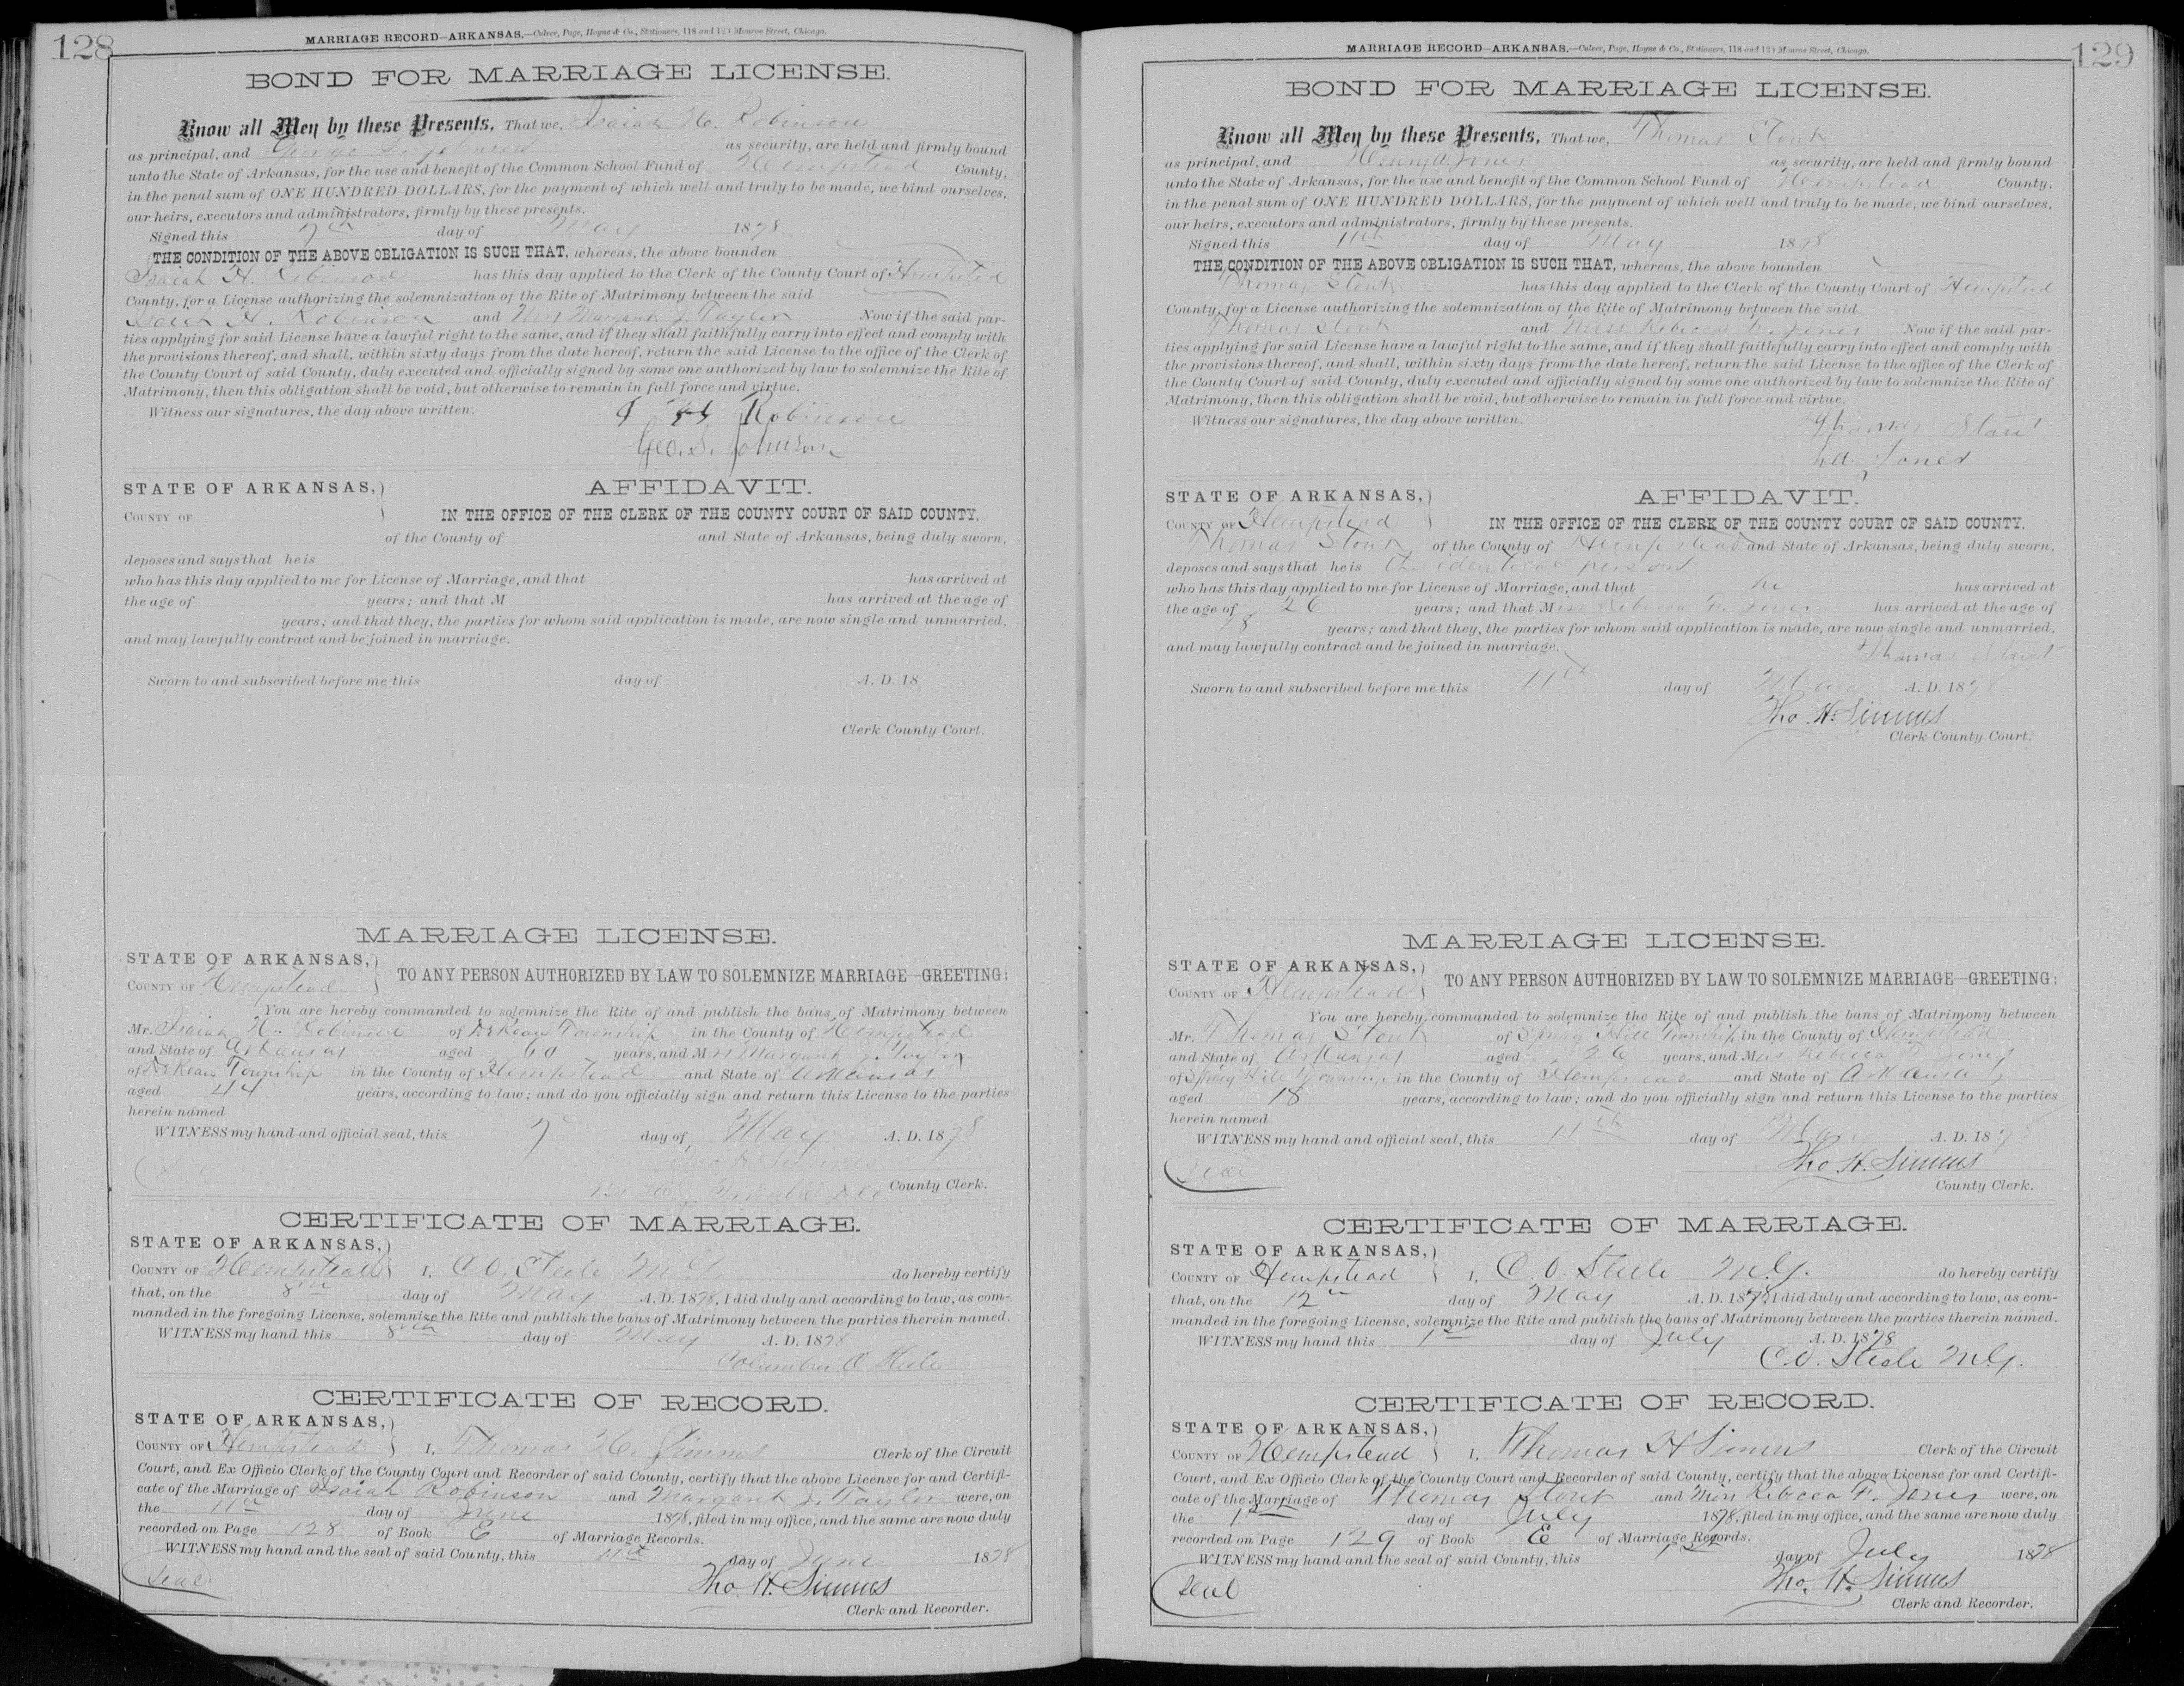 128
MARRIAGE RECORD—ARKANSAS.—Culver, Page, Hoyne & Co., Stationers, 118 and 120 Monroe Street, Chicago.
BOND FOR MARRIAGE LICENSE.
Know all Men by these Presents, That we, Isaiah H. Robinson
as principal, and George S. Johnson as security, are held and firmly bound
unto the State of Arkansas, for the use and benefit of the Common School Fund of Hempstead County,
in the penal sum of ONE HUNDRED DOLLARS, for the payment of which well and truly to be made, we bind ourselves,
our heirs, executors and administrators, firmly by these presents.
Signed this 7th day of May 1878
THE CONDITION OF THE ABOVE OBLIGATION IS SUCH THAT, whereas, the above bounden
Isaiah H. Robinson has this day applied to the Clerk of the County Court of Hempstead
County, for a License authorizing the solemnization of the Rite of Matrimony between the said
Isaiah H. Robinson and Mrs Margaret J. Taylor Now if the said par-
ties applying for said License have a lawful right to the same, and if they shall faithfully carry into effect and comply with
the provisions thereof, and shall, within sixty days from the date hereof, return the said License to the office of the Clerk of
the County Court of said County, duly executed and officially signed by some one authorized by law to solemnize the Rite of
Matrimony, then this obligation shall be void, but otherwise to remain in full force and virtue.
Witness our signatures, the day above written.
I H Robinson
Geo. S. Johnson
STATE OF ARKANSAS, AFFIDAVIT.
COUNTY OF IN THE OFFICE OF THE CLERK OF THE COUNTY COURT OF SAID COUNTY.
of the County of and State of Arkansas, being duly sworn,
deposes and says that he is
who has this day applied to me for License of Marriage, and that has arrived at
the age of years; and that M has arrived at the age of
years; and that they, the parties for whom said application is made, are now single and unmarried,
and may lawfully contract and be joined in marriage.
Sworn to and subscribed before me this day of A. D. 18
Clerk County Court.
MARRIAGE LICENSE.
STATE OF ARKANSAS,
COUNTY OF Hempstead TO ANY PERSON AUTHORIZED BY LAW TO SOLEMNIZE MARRIAGE—GREETING:
You are hereby commanded to solemnize the Rite of and publish the bans of Matrimony between
Mr. Isaiah H. Robinson of De Roan Township in the County of Hempstead
and State of Arkansas aged 60 years, and Mrs Margaret J. Taylor
of De Roan Township in the County of Hempstead and State of Arkansas
aged 44 years, according to law; and do you officially sign and return this License to the parties
herein named
WITNESS my hand and official seal, this 7 day of May A. D. 1878
Seal Tho H Simms
County Clerk.
CERTIFICATE OF MARRIAGE.
STATE OF ARKANSAS,
COUNTY OF Hempstead I, C. O. Steele M.G. do hereby certify
that, on the 8th day of May A. D. 1878, I did duly and according to law, as com-
manded in the foregoing License, solemnize the Rite and publish the bans of Matrimony between the parties therein named.
WITNESS my hand this 8th day of May A. D. 1878
Columbus O Steele
CERTIFICATE OF RECORD.
STATE OF ARKANSAS,
COUNTY OF Hempstead I, Thomas H. Simms Clerk of the Circuit
Court, and Ex Officio Clerk of the County Court and Recorder of said County, certify that the above License for and Certifi-
cate of the Marriage of Isaiah Robinson and Margaret J. Taylor were, on
the 11th day of June 1878, filed in my office, and the same are now duly
recorded on Page 128 of Book E of Marriage Records.
WITNESS my hand and the seal of said County, this 11th day of June 1878
Seal Tho. H. Simms
Clerk and Recorder.
129
MARRIAGE RECORD—ARKANSAS.—Culver, Page, Hoyne & Co., Stationers, 118 and 120 Monroe Street, Chicago.
BOND FOR MARRIAGE LICENSE.
Know all Men by these Presents, That we, Thomas Stout
as principal, and Henry A. Jones as security, are held and firmly bound
unto the State of Arkansas, for the use and benefit of the Common School Fund of Hempstead County,
in the penal sum of ONE HUNDRED DOLLARS, for the payment of which well and truly to be made, we bind ourselves,
our heirs, executors and administrators, firmly by these presents.
Signed this 11th day of May 1878
THE CONDITION OF THE ABOVE OBLIGATION IS SUCH THAT, whereas, the above bounden
Thomas Stout has this day applied to the Clerk of the County Court of Hempstead
County, for a License authorizing the solemnization of the Rite of Matrimony between the said
Thomas Stout and Miss Rebecca F. Jones Now if the said par-
ties applying for said License have a lawful right to the same, and if they shall faithfully carry into effect and comply with
the provisions thereof, and shall, within sixty days from the date hereof, return the said License to the office of the Clerk of
the County Court of said County, duly executed and officially signed by some one authorized by law to solemnize the Rite of
Matrimony, then this obligation shall be void, but otherwise to remain in full force and virtue.
Witness our signatures, the day above written.
Thomas Stout
Jones
STATE OF ARKANSAS, AFFIDAVIT.
COUNTY OF Hempstead IN THE OFFICE OF THE CLERK OF THE COUNTY COURT OF SAID COUNTY.
Thomas Stout of the County of Hempstead and State of Arkansas, being duly sworn,
deposes and says that he is the identical person
who has this day applied to me for License of Marriage, and that he has arrived at
the age of 26 years; and that Miss Rebecca F. Jones has arrived at the age of
18 years; and that they, the parties for whom said application is made, are now single and unmarried,
and may lawfully contract and be joined in marriage.
Thomas Stout
Sworn to and subscribed before me this 11th day of May A. D. 1878
Tho. H. Simms
Clerk County Court.
MARRIAGE LICENSE.
STATE OF ARKANSAS,
COUNTY OF Hempstead TO ANY PERSON AUTHORIZED BY LAW TO SOLEMNIZE MARRIAGE—GREETING:
You are hereby commanded to solemnize the Rite of and publish the bans of Matrimony between
Mr. Thomas Stout of Spring Hill Township in the County of Hempstead
and State of Arkansas aged 26 years, and Miss Rebecca F. Jones
of Spring Hill Township in the County of Hempstead and State of Arkansas
aged 18 years, according to law; and do you officially sign and return this License to the parties
herein named
WITNESS my hand and official seal, this 11th day of May A. D. 187
Seal Tho. H. Simms
County Clerk.
CERTIFICATE OF MARRIAGE.
STATE OF ARKANSAS,
COUNTY OF Hempstead I, C. O. Steele M.G. do hereby certify
that, on the 12th day of May A. D. 1878, I did duly and according to law, as com-
manded in the foregoing License, solemnize the Rite and publish the bans of Matrimony between the parties therein named.
WITNESS my hand this 1st day of July A. D. 1878
C. O. Steele M.G.
CERTIFICATE OF RECORD.
STATE OF ARKANSAS,
COUNTY OF Hempstead I, Thomas H Simms Clerk of the Circuit
Court, and Ex Officio Clerk of the County Court and Recorder of said County, certify that the above License for and Certifi-
cate of the Marriage of Thomas Stout and Miss Rebecca F. Jones were, on
the 1st day of July 1878, filed in my office, and the same are now duly
recorded on Page 129 of Book E of Marriage Records.
WITNESS my hand and the seal of said County, this 1st day of July 1878
Seal Tho. H. Simms
Clerk and Recorder.